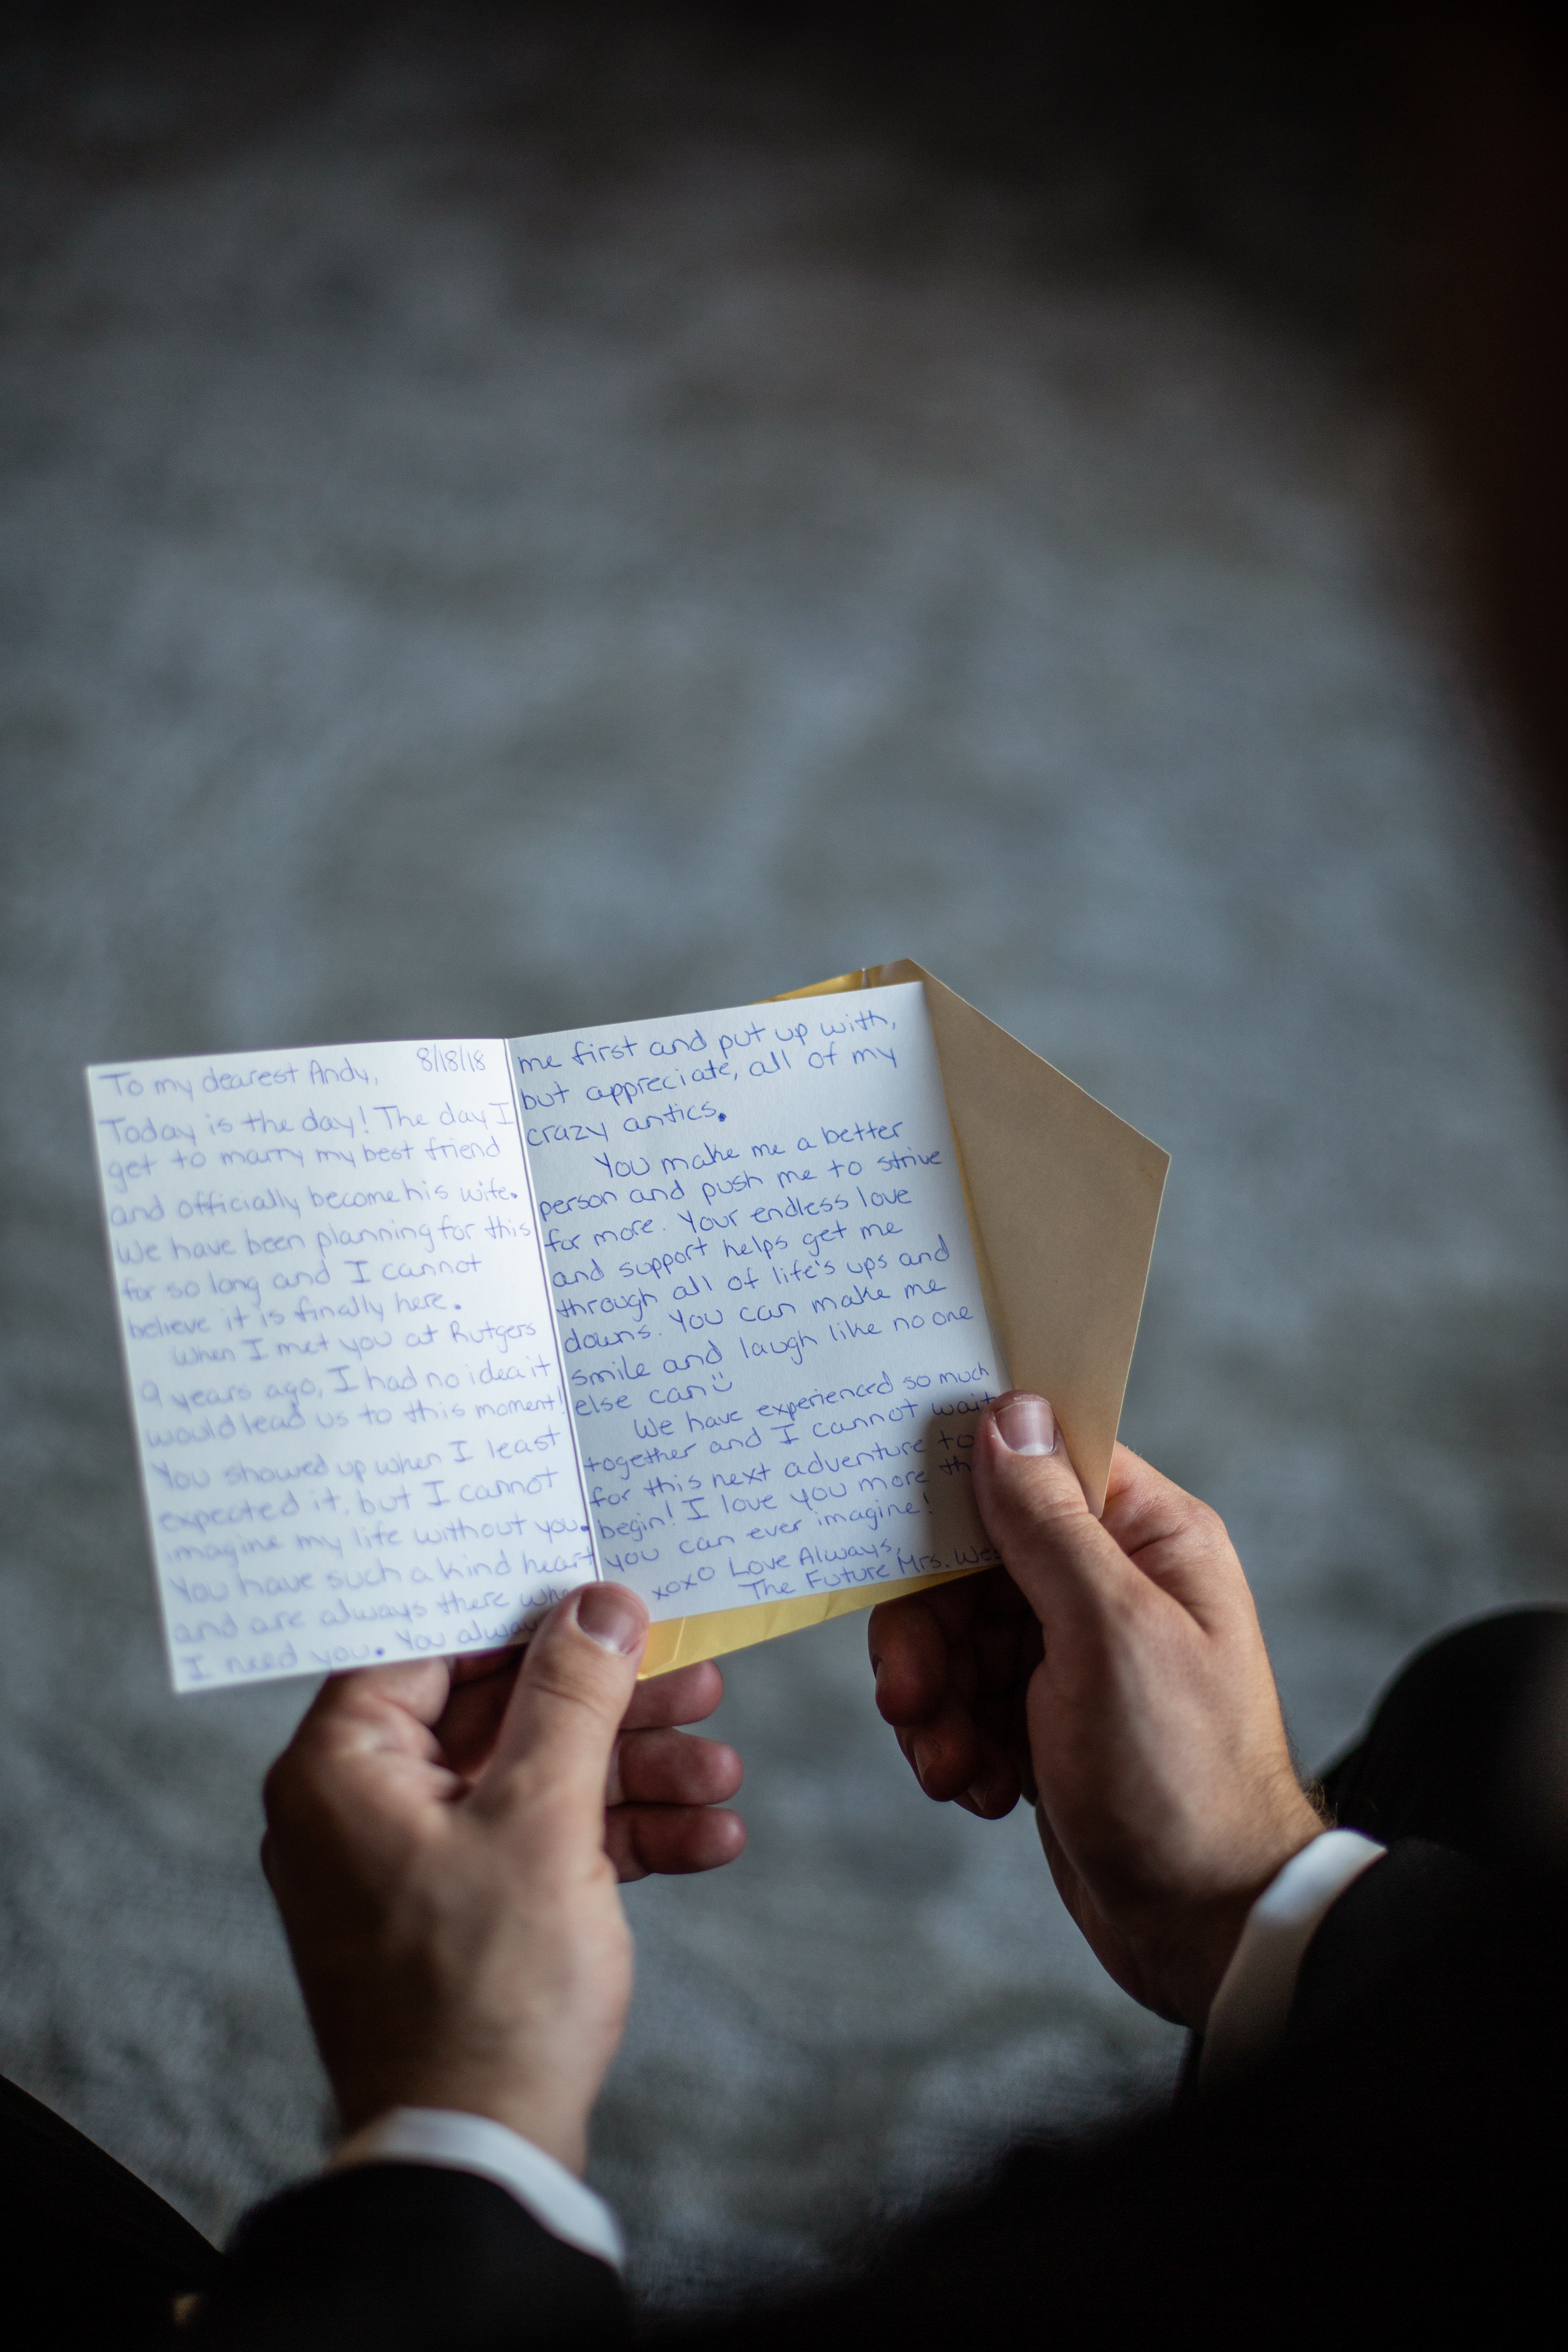 To my dearest Andy, 8/18/18
Today is the day! The day I
get to marry my best friend
and officially become his wife.
We have been planning for this
for so long and I cannot
believe it is finally here.
When I met you at Rutgers
9 years ago, I had no idea it
would lead us to this moment!
You showed up when I least
expected it, but I cannot
imagine my life without you.
You have such a kind heart
and are always there
I need you. You
me first and put up with,
but appreciate, all of my
crazy antics.
You make me a better
person and push me to strive
for more. Your endless love
and support helps get me
through all of life's ups and
downs. You can make me
smile and laugh like no one
else can
We have experienced so much
together and I cannot wait
for this next adventure to
begin! I love you more
you can ever imagine!
xoxo Love Always,
The Future Mrs.